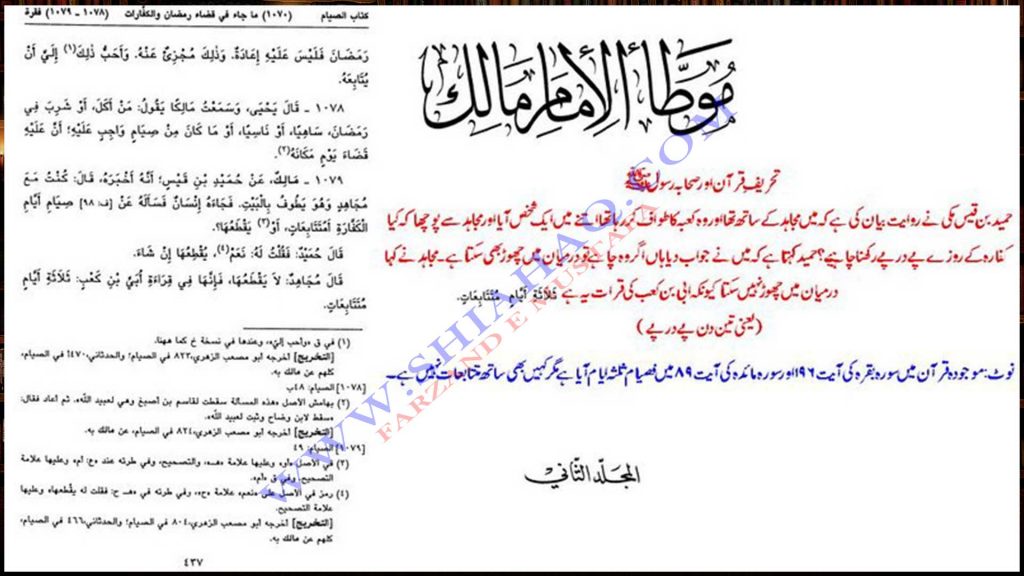 كتاب الصيام (١٠٧٠) ما جاء في قضاء رمضان والكفّارات (١٠٧٨ ـ ١٠٧٩) فقرة
رَمَضَانَ فَلَيْسَ عَلَيْهِ إِعَادَةٌ. وَذٰلِكَ مُجْزِئٌ عَنْهُ. وَأَحَبُّ ذٰلِكَ(١) إِلَيَّ أَنْ
يُتَابِعَهُ.
١٠٧٨ ـ قَالَ يَحْيَى، وَسَمَعْتُ مَالِكًا يَقُولُ: مَنْ أَكَلَ، أَوْ شَرِبَ فِي
رَمَضَانَ، سَاهِيًا، أَوْ نَاسِيًا، أَوْ مَا كَانَ مِنْ صِيَامٍ وَاجِبٍ عَلَيْهِ؛ أَنَّ عَلَيْهِ
قَضَاءَ يَوْمٍ مَكَانَهُ(٢).
١٠٧٩ ـ مَالِكٌ، عَنْ حُمَيْدِ بْنِ قَيْسٍ؛ أَنَّهُ أَخْبَرَهُ، قَالَ: كُنْتُ مَعَ
مُجَاهِدٍ وَهُوَ يَطُوفُ بِالْبَيْتِ. فَجَاءَهُ إِنْسَانٌ فَسَأَلَهُ عَنْ [ف: ٩٨] صِيَامِ أَيَّامِ
الْكَفَّارَةِ أَمُتَتَابِعَاتٍ، أَوْ(٣) يَقْطَعُهَا؟.
قَالَ حُمَيْدٌ: فَقُلْتُ لَهُ: نَعَمْ(٤)، يُقْطَعُهَا إِنْ شَاءَ.
قَالَ مُجَاهِدٌ: لاَ يَقْطَعُهَا، فَإِنَّهَا فِي قِرَاءَةِ أُبَيِّ بْنِ كَعْبٍ: ثَلاَثَةِ أَيَّامٍ
مُتَتَابِعَاتٍ.
(١) في ق «وأحب إليّ»، وعندها في نسخة خ كما ههنا.
[التخريج] أخرجه أبو مصعب الزهري، ٨٢٣ في الصيام؛ والحدثاني، ٤٧٠أ في الصيام،
كلهم عن مالك به.
[١٠٧٨] الصيام: ٤٨ب
(٢) بهامش الأصل «هذه المسألة سقطت لقاسم بن أصبغ وهي لعبيد الله». ثم أعاد فقال:
«سقط لابن وضاح وثبت لعبيد الله».
[التخريج] أخرجه أبو مصعب الزهري، ٨٢٤ في الصيام، عن مالك به.
[١٠٧٩] الصيام: ٤٩
(٣) في الأصل «أو» وعليها علامة «هـ»، والتصحيح، وفي طرته عند «ع: أم»، وعليها علامة
التصحيح، وفي ق «أم».
(٤) رمز في الأصل على «نعم» علامة «ح»، وفي طرته في «هـ ح: فقلت له يقطعها» وعليها
علامة التصحيح.
[التخريج] أخرجه أبو مصعب الزهري، ٨٠٤ في الصيام؛ والحدثاني، ٤٦٦ في الصيام،
كلهم عن مالك به.
٤٣٧
مُوَطَّأُ الإِمَامِ مَالِكٍ
تحریف قرآن اور صحابہ رسول ﷺ
حمید بن قیس مکی نے روایت بیان کی ہے کہ میں مجاہد کے ساتھ تھا اور وہ کعبہ کا طواف کر رہا تھا اتنے میں ایک شخص آیا اور مجاہد سے پوچھا کہ کیا
کفارہ کے روزے پے در پے رکھنا چاہیے؟ حمید کہتا ہے کہ میں نے جواب دیا ہاں اگر وہ چاہے تو درمیان میں چھوڑ بھی سکتا ہے۔ مجاہد نے کہا
درمیان میں چھوڑ نہیں سکتا کیونکہ ابی بن کعب کی قرات یہ ہے ثَلاَثَةِ أَيَّامٍ مُتَتَابِعَاتٍ.
(یعنی تین دن پے در پے)
نوٹ: موجودہ قرآن میں سورہ بقرہ کی آیت ۱۹۶ اور سورہ مائدہ کی آیت ۸۹ میں فصیام ثلثۃ ایام آیا ہے مگر کہیں بھی ساتھ متتابعات نہیں ہے۔
المجلد الثاني
WWW.SHIAHAQ.COM
FARZAND E MUSTAFA